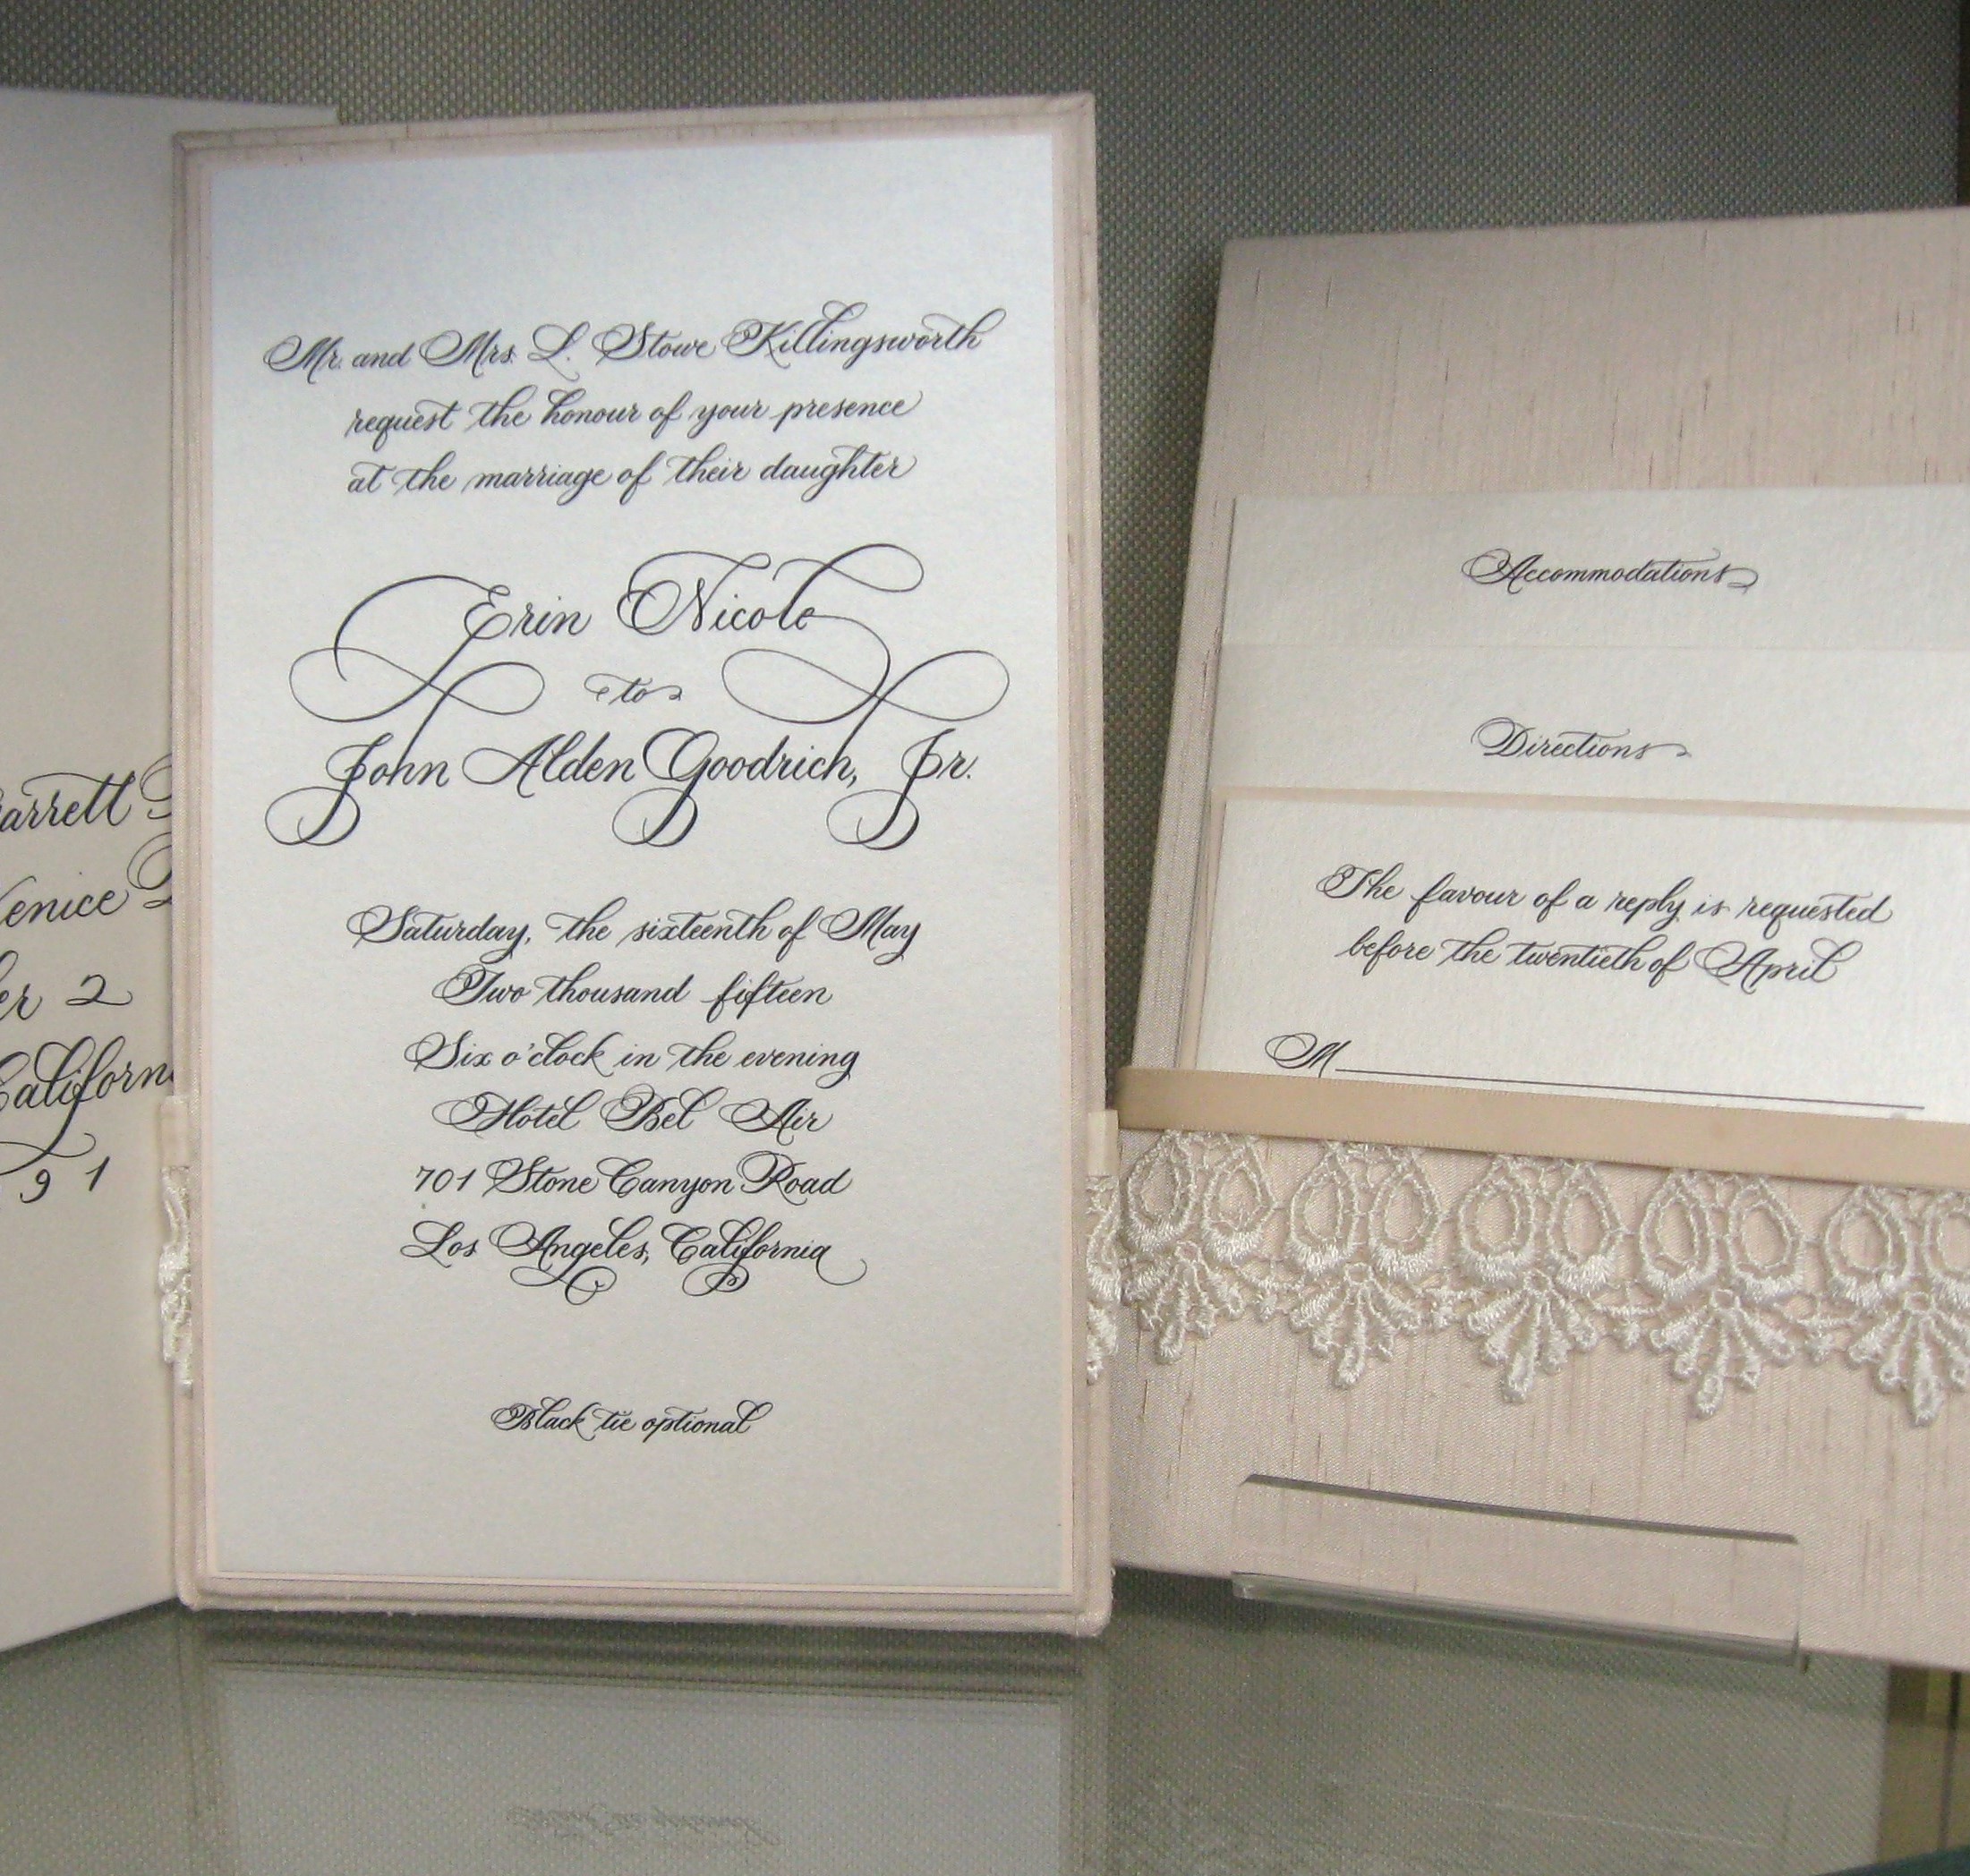 arrett
enice
er 2
Californ
9 1
Mr. and Mrs. L. Stowe Killingsworth
request the honour of your presence
at the marriage of their daughter
Erin Nicole
to
John Alden Goodrich, Jr.
Saturday, the sixteenth of May
Two thousand fifteen
Six o'clock in the evening
Hotel Bel Air
701 Stone Canyon Road
Los Angeles, California
Black tie optional
Accommodations
Directions
The favour of a reply is requested
before the twentieth of April
M